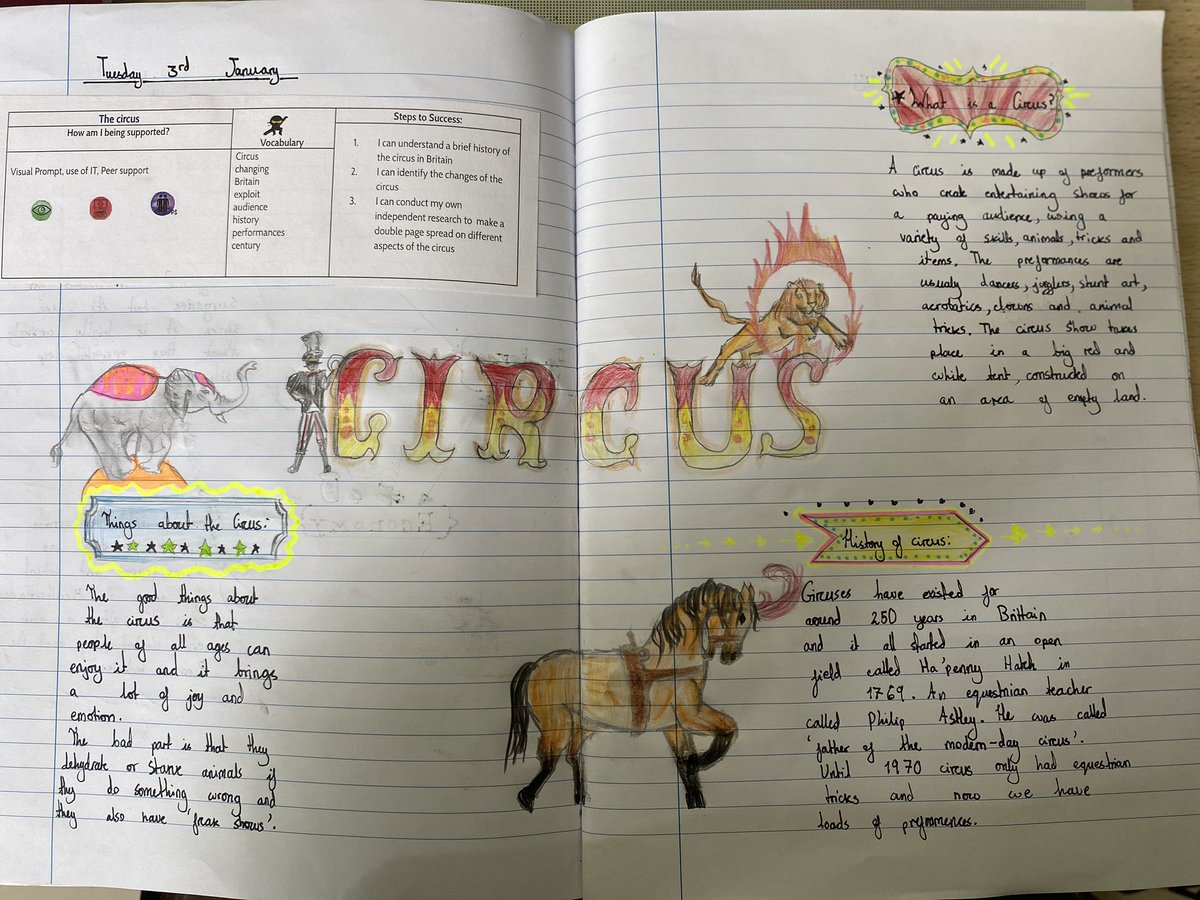 Tuesday 3rd January
The circus
How am I being supported?
Visual Prompt, use of IT, Peer support
PS
Vocabulary
Circus
changing
Britain
exploit
audience
history
performances
century
Steps to Success:
1. I can understand a brief history of
the circus in Britain
2. I can identify the changes of the
circus
3. I can conduct my own
independent research to make a
double page spread on different
aspects of the circus
CIRCUS
Things about the Circus:
The good things about
the circus is that
people of all ages can
enjoy it and it brings
a lot of joy and
emotion.
The bad part is that they
dehydrate or starve animals if
they do something wrong and
they also have 'freak shows'.
What is a Circus?
A circus is made up of preformers
who create entertaining shows for
a paying audience, using a
variety of skills, animals, tricks and
items. The preformances are
usualy dancers, jugglers, stunt art,
acrobatics, clowns and animal
tricks. The circus show takes
place in a big red and
white tent, constructed on
an area of empty land.
History of circus:
Circuses have existed for
around 250 years in Brittain
and it all started in an open
field called Ha'penny Hatch in
1769. An equestrian teacher
called Philip Astley. He was called
'father of the modern-day circus'.
Until 1970 circus only had equestrian
tricks and now we have
loads of